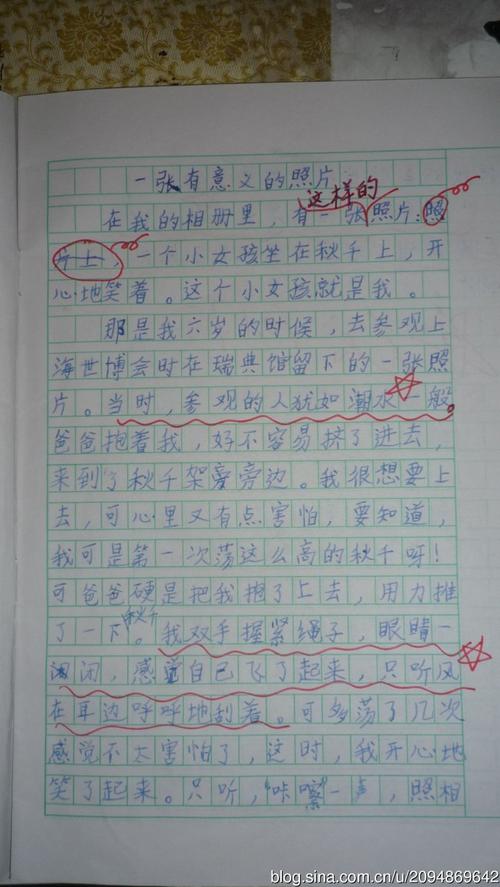 一张有意义的照片
这样的
在我的相册里，有一张照片：照
片上，一个小女孩坐在秋千上，开
心地笑着。这个小女孩就是我。
那是我六岁的时候，去参观上
海世博会时在瑞典馆留下的一张照
片。当时，参观的人犹如潮水一般。
爸爸抱着我，好不容易挤了进去，
来到了秋千架旁边。我很想要上
去，可心里又有点害怕，要知道，
我可是第一次荡这么高的秋千呀！
可爸爸硬是把我抱了上去，用力推
秋千
了一下。我双手握紧绳子，眼睛一
闭，感觉自己飞了起来，只听风
在耳边呼呼地刮着。可多荡了几次
感觉不太害怕了，这时，我开心地
笑了起来。只听，“咔嚓”一声，照相
blog.sina.com.cn/u/2094869642